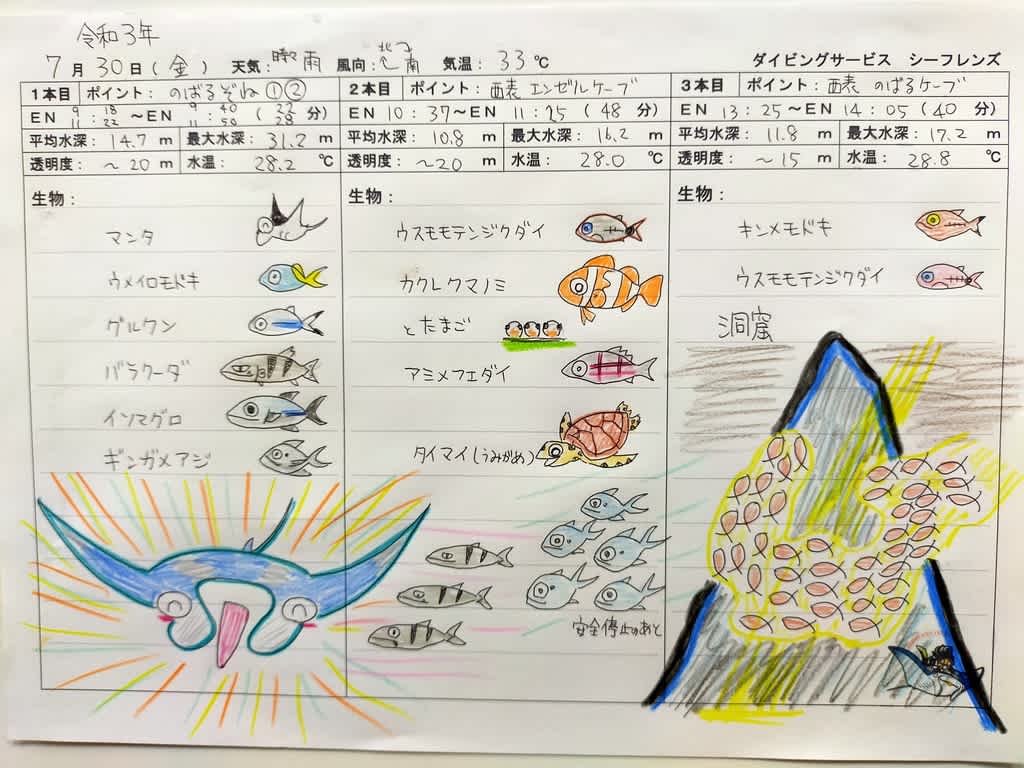 令和3年
7月30日(金) 天気:時々雨 風向:北→南 気温:33℃ ダイビングサービス シーフレンズ
1本目 ポイント: のばるぞね①②
EN 9:18 11:22 ～EN 9:40 11:50 (22 28 分)
平均水深: 14.7 m 最大水深: 31.2 m
透明度: ～20 m 水温: 28.2 ℃
生物:
マンタ
ウメイロモドキ
グルクン
バラクーダ
イソマグロ
ギンガメアジ
2本目 ポイント: 西表 エンゼルケーブ
EN 10:37～EN 11:25 (48 分)
平均水深: 10.8 m 最大水深: 16.2 m
透明度: ～20 m 水温: 28.0 ℃
生物:
ウスモモテンジクダイ
カクレクマノミ
とたまご
アミメフエダイ
タイマイ(うみがめ)
安全停止のあと
3本目 ポイント: 西表 のばるケーブ
EN 13:25～EN 14:05 (40 分)
平均水深: 11.8 m 最大水深: 17.2 m
透明度: ～15 m 水温: 28.8 ℃
生物:
キンメモドキ
ウスモモテンジクダイ
洞窟